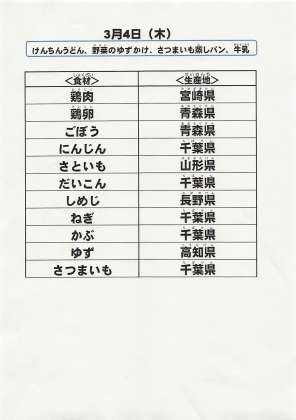 3月4日（木）
けんちんうどん、野菜のゆずかけ、さつまいも蒸しパン、牛乳
＜食材＞ ＜生産地＞
鶏肉 宮崎県
鶏卵 青森県
ごぼう 青森県
にんじん 千葉県
さといも 山形県
だいこん 千葉県
しめじ 長野県
ねぎ 千葉県
かぶ 千葉県
ゆず 高知県
さつまいも 千葉県